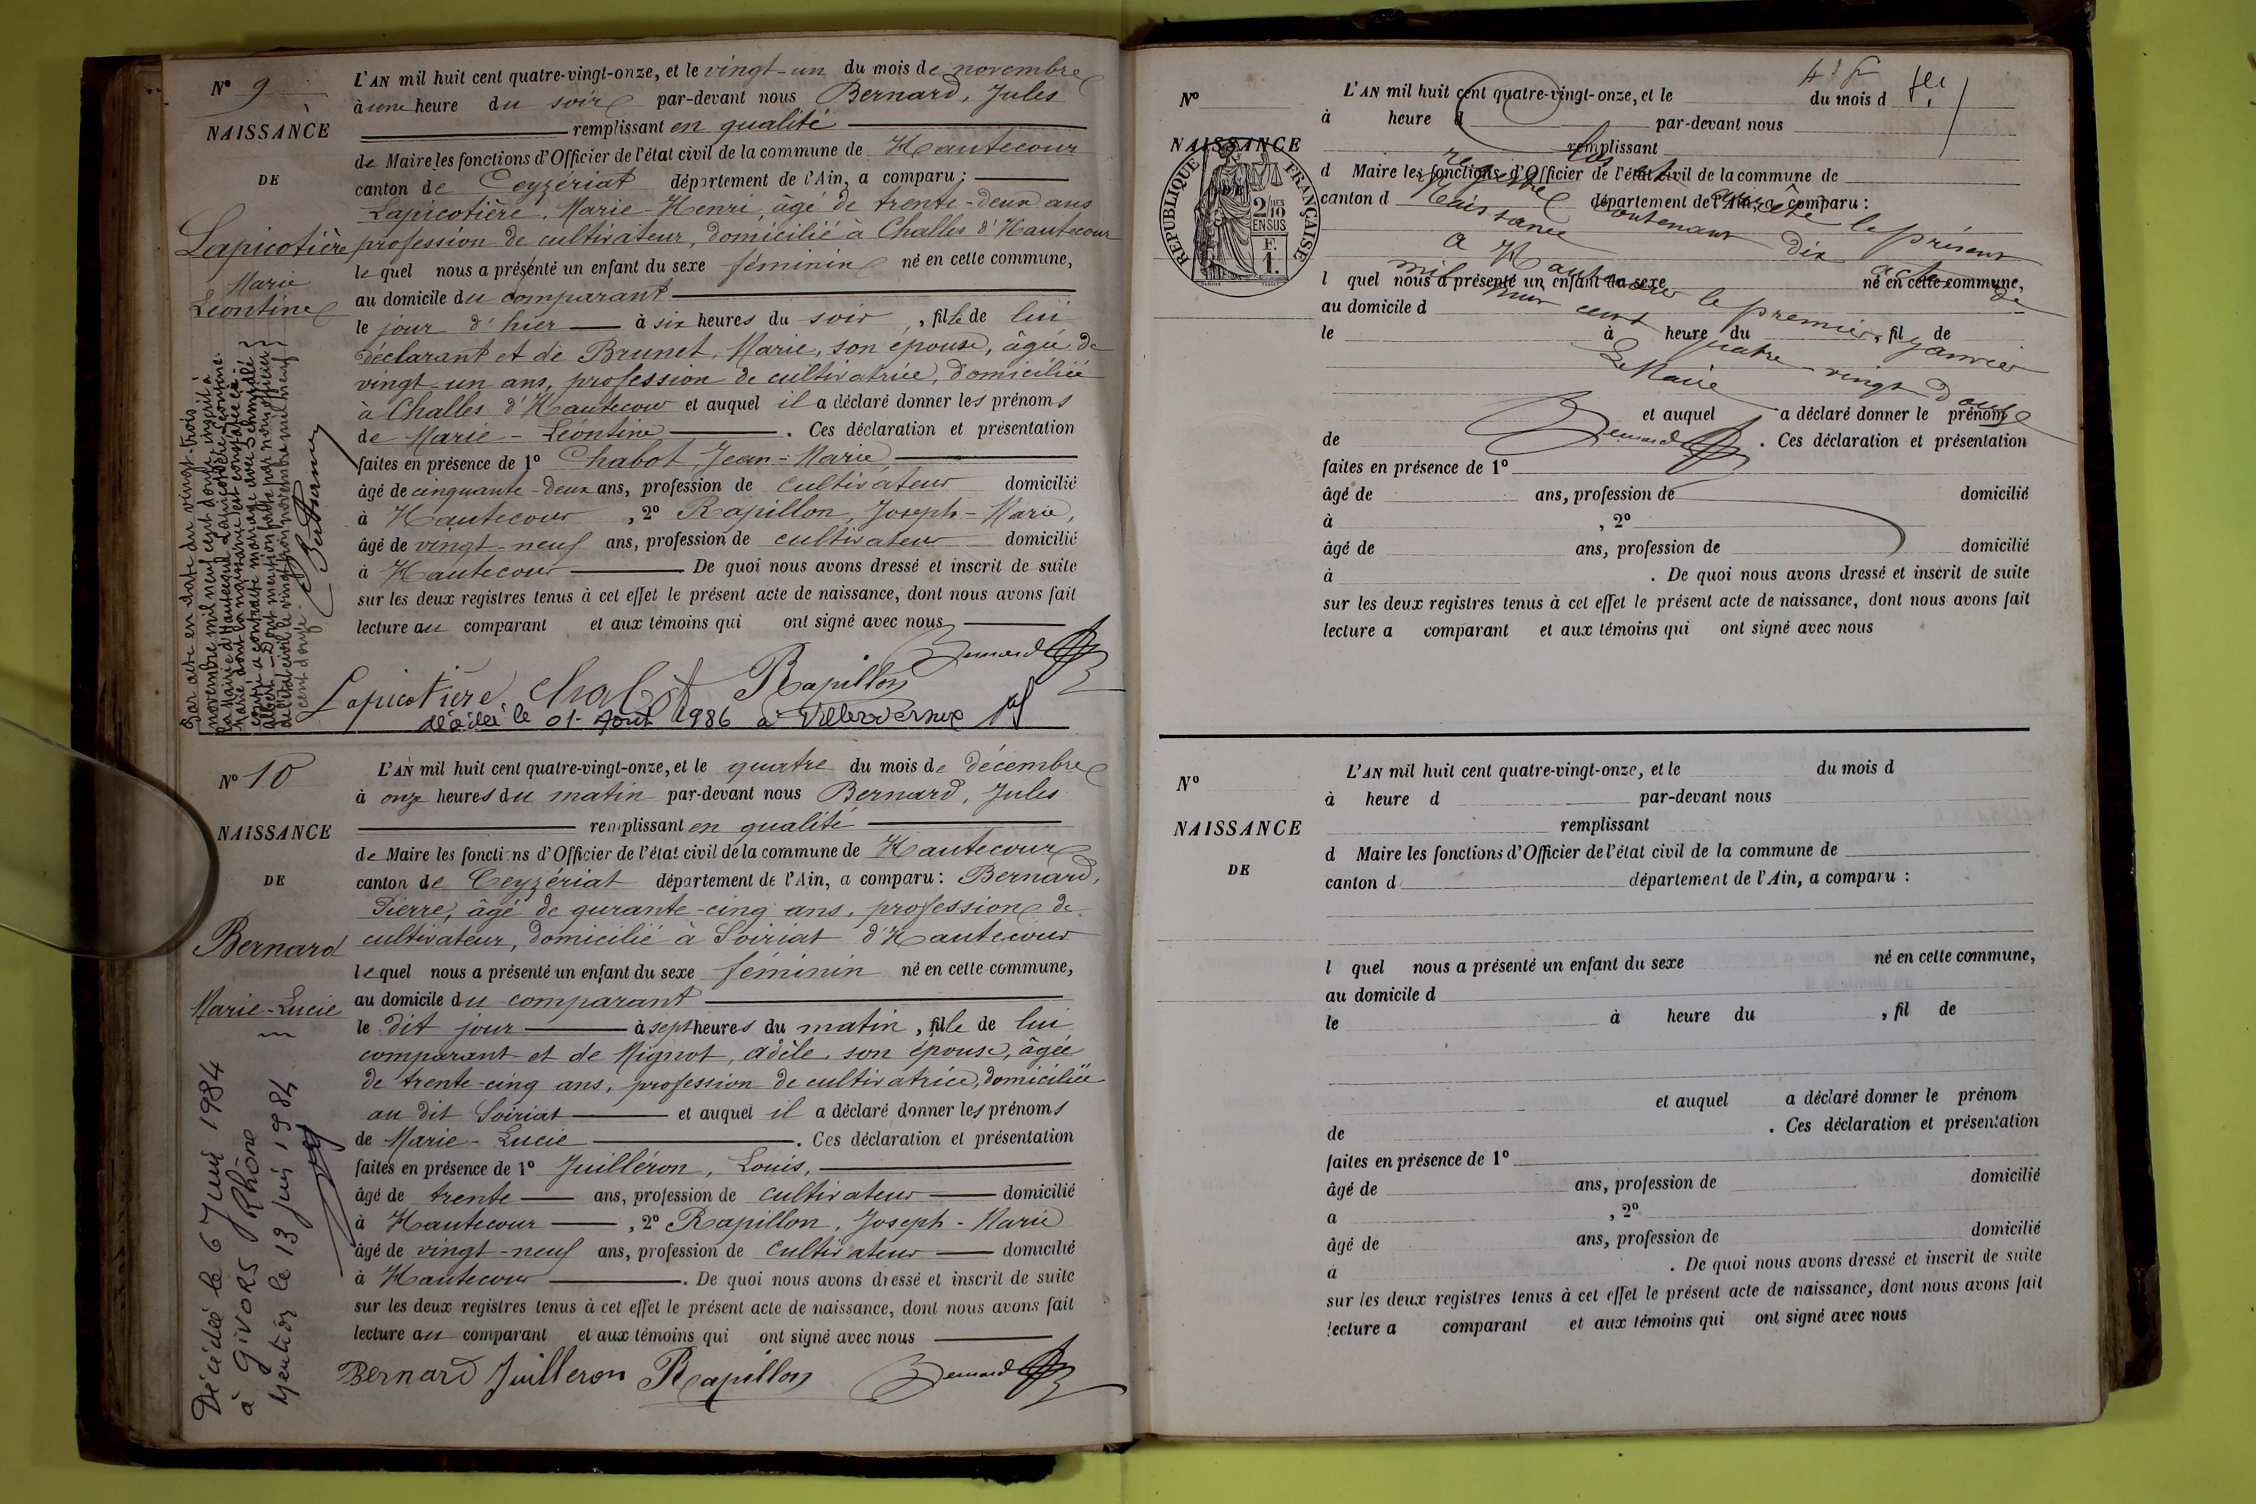 Nº 9
NAISSANCE
DE
Lapicotière
Marie
Léontine
L'AN mil huit cent quatre-vingt-onze, et le vingt-un du mois de novembre
à une heure du soir par-devant nous Bernard, Jules
remplissant en qualité
de Maire les fonctions d'Officier de l'état civil de la commune de Hautecour
canton de Ceyzériat département de l'Ain, a comparu :
Lapicotière, Marie-Henri, âgé de trente-deux ans
profession de cultivateur, domicilié à Challes d'Hautecour
lequel nous a présenté un enfant du sexe féminin né en cette commune,
au domicile du comparant
le jour d'hier à six heures du soir, fille de lui
déclarant et de Brunet, Marie, son épouse, âgée de
vingt-un ans, profession de cultivatrice, domiciliée
à Challes d'Hautecour et auquel il a déclaré donner les prénoms
de Marie-Léontine. Ces déclaration et présentation
faites en présence de 1º Chabot, Jean-Marie
âgé de cinquante-deux ans, profession de cultivateur domicilié
à Hautecour, 2º Rapillon, Joseph-Marie,
âgé de vingt-neuf ans, profession de cultivateur domicilié
à Hautecour. De quoi nous avons dressé et inscrit de suite
sur les deux registres tenus à cet effet le présent acte de naissance, dont nous avons fait
lecture au comparant et aux témoins qui ont signé avec nous
Bernard
Lapicotière Chabot Rapillon
décédée le 01 Août 1986 à
Par acte en date du vingt-trois
novembre mil neuf cent douze, inscrit à
la Mairie d'Hautecour, Lapicotière Léontine-
Marie dont la naissance est constatée ci-
contre a contracté mariage avec
Albert. Dont mention faite par nous officier
de l'état civil le vingt-trois novembre mil neuf
cent douze.
Nº 10
NAISSANCE
DE
Bernard
Marie-Lucie
L'AN mil huit cent quatre-vingt-onze, et le quatre du mois de décembre
à onze heures du matin par-devant nous Bernard, Jules
remplissant en qualité
de Maire les fonctions d'Officier de l'état civil de la commune de Hautecour
canton de Ceyzériat département de l'Ain, a comparu : Bernard,
Pierre, âgé de qurante-cinq ans, profession de
cultivateur, domicilié à Soiriat d'Hautecour
lequel nous a présenté un enfant du sexe féminin né en cette commune,
au domicile du comparant
le dit jour à sept heures du matin, fille de lui
comparant et de Mignot, Adèle, son épouse, âgée
de trente-cinq ans, profession de cultivatrice, domiciliée
au dit Soiriat et auquel il a déclaré donner les prénoms
de Marie-Lucie. Ces déclaration et présentation
faites en présence de 1º Juilléron, Louis,
âgé de trente ans, profession de cultivateur domicilié
à Hautecour, 2º Rapillon, Joseph-Marie
âgé de vingt-neuf ans, profession de cultivateur domicilié
à Hautecour. De quoi nous avons dressé et inscrit de suite
sur les deux registres tenus à cet effet le présent acte de naissance, dont nous avons fait
lecture au comparant et aux témoins qui ont signé avec nous
Bernard Juilleron Rapillon Bernard
Décédée le 6 Juin 1984
à GIVORS Rhône
Mention le 13 juin 1984
Nº
NAISSANCE
DE
RÉPUBLIQUE FRANÇAISE
2/10 DES
EN SUS
F.
1.
L'AN mil huit cent quatre-vingt-onze, et le du mois d
à heure d par-devant nous
remplissant
d Maire les fonctions d'Officier de l'état civil de la commune de
canton d département de l'Ain, a comparu :
l quel nous a présenté un enfant du sexe né en cette commune,
au domicile d
le à heure du , fil de
et auquel a déclaré donner le prénom
de . Ces déclaration et présentation
faites en présence de 1º
âgé de ans, profession de domicilié
à , 2º
âgé de ans, profession de domicilié
à . De quoi nous avons dressé et inscrit de suite
sur les deux registres tenus à cet effet le présent acte de naissance, dont nous avons fait
lecture a comparant et aux témoins qui ont signé avec nous
Clos et arrêté le présent
registre contenant dix actes de
Naissance
A Hautecour le premier janvier
mil huit cent quatre-vingt douze
Le Maire
Bernard
Nº
NAISSANCE
DE
L'AN mil huit cent quatre-vingt-onze, et le du mois d
à heure d par-devant nous
remplissant
d Maire les fonctions d'Officier de l'état civil de la commune de
canton d département de l'Ain, a comparu :
l quel nous a présenté un enfant du sexe né en cette commune,
au domicile d
le à heure du , fil de
et auquel a déclaré donner le prénom
de . Ces déclaration et présentation
faites en présence de 1º
âgé de ans, profession de domicilié
a , 2º
âgé de ans, profession de domicilié
a . De quoi nous avons dressé et inscrit de suite
sur les deux registres tenus à cet effet le présent acte de naissance, dont nous avons fait
lecture a comparant et aux témoins qui ont signé avec nous